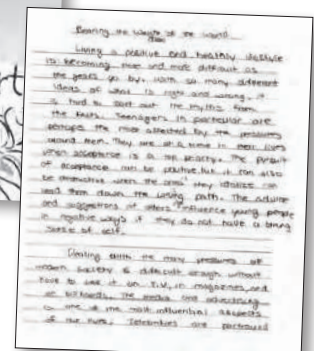 Bearing the Weight of the World
Living a positive and healthy lifestyle
is becoming more and more difficult as
the years go by. With so many different
ideas of what is right and wrong, it
is hard to sort out the myths from
the truth. Teenagers in particular are
perhaps the most affected by the pressures
around them. They are at a time in their lives
when acceptance is a top priority. The pursuit
of acceptance can be positive, but it can also
be destructive when the ones they idolize can
lead them down the wrong path. The advice
and suggestions of others influence young people
in negative ways if they do not have a strong
sense of self.
Dealing with the many pressures of
modern society is difficult enough without
have to see it on T.V., in magazines, and
on billboards. The media and advertising
is one of the most influential aspects
of our Celebrities are portrayed